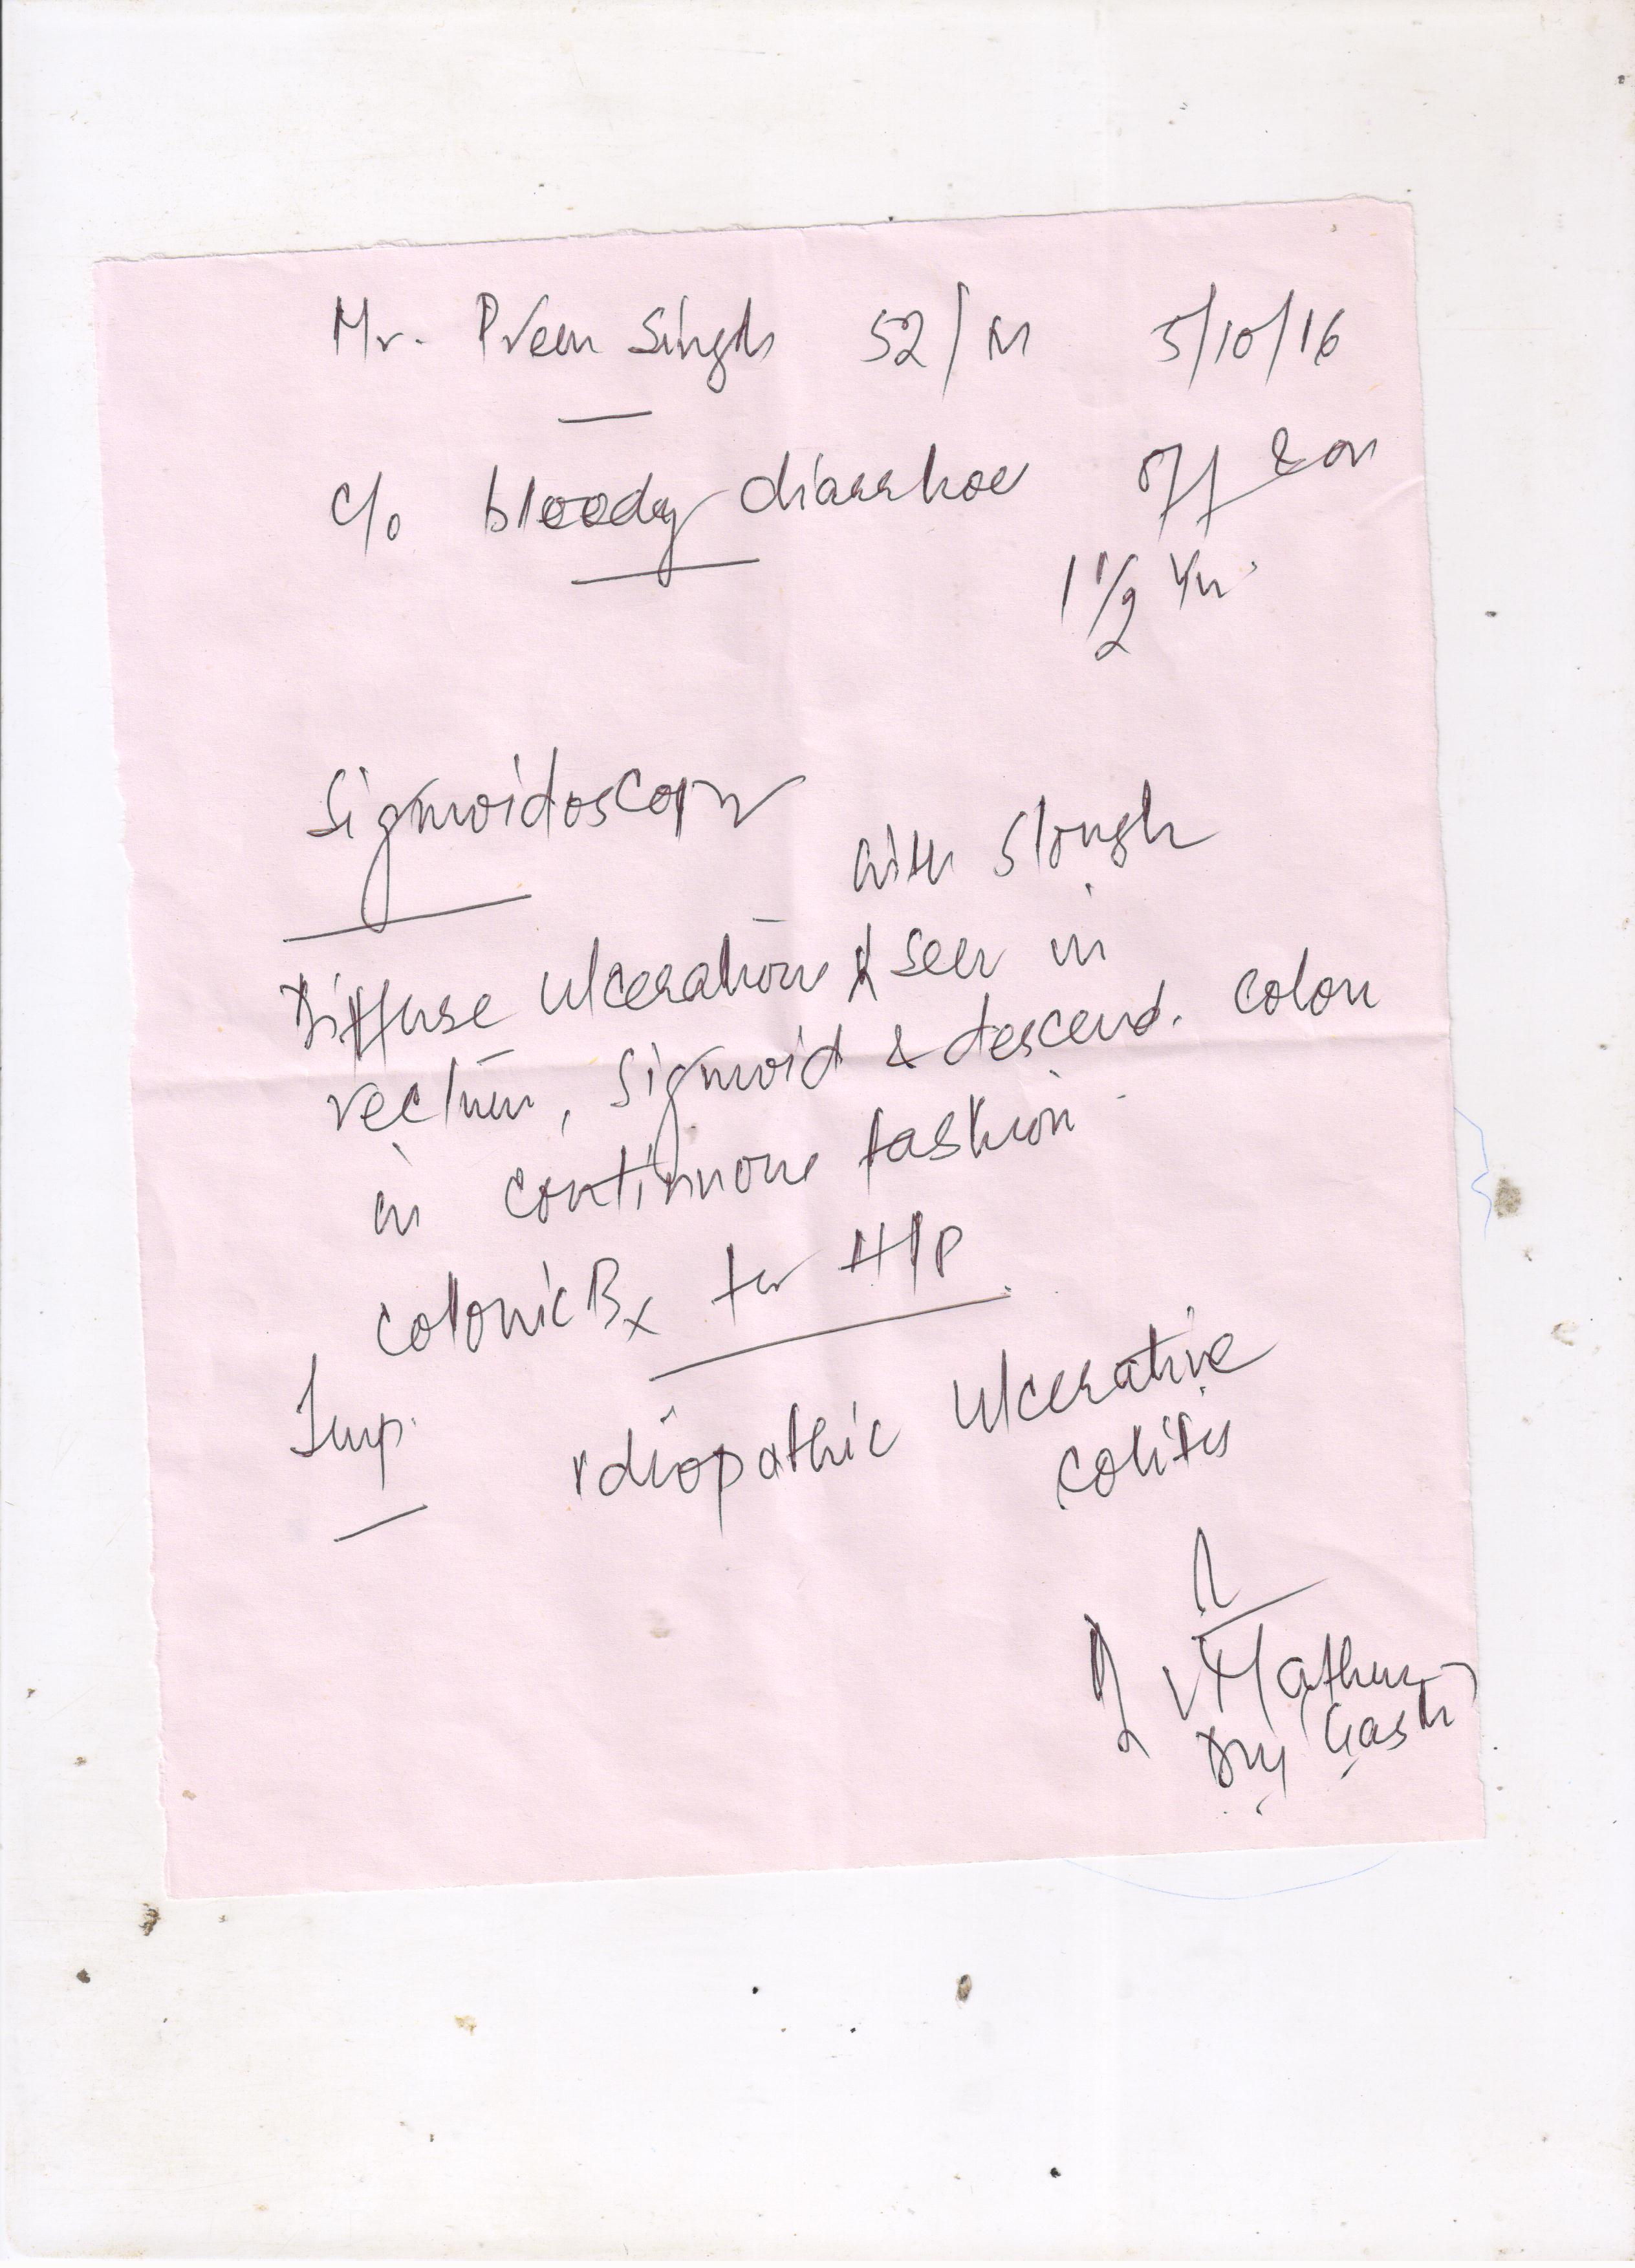 Mr. Prem Singh 52/M 5/10/16
c/o bloody diarrhoea off & on
1 1/2 Yr.
Sigmoidoscopy
with slough
Diffuse ulceration seen in
rectum, sigmoid & descend. colon
in continuous fashion
colonic Bx for H/P
Imp. Idiopathic ulcerative
colitis
Dr V Mathur
Gast